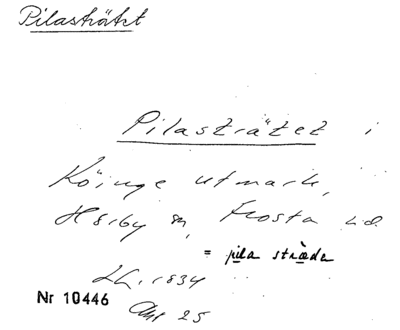 Pilasträtet
Pilasträtet i
Köinge utmark,
Hörby sn, Frosta hd.
= pila sträda
LA. 1834
Nr 10446
Akt 25